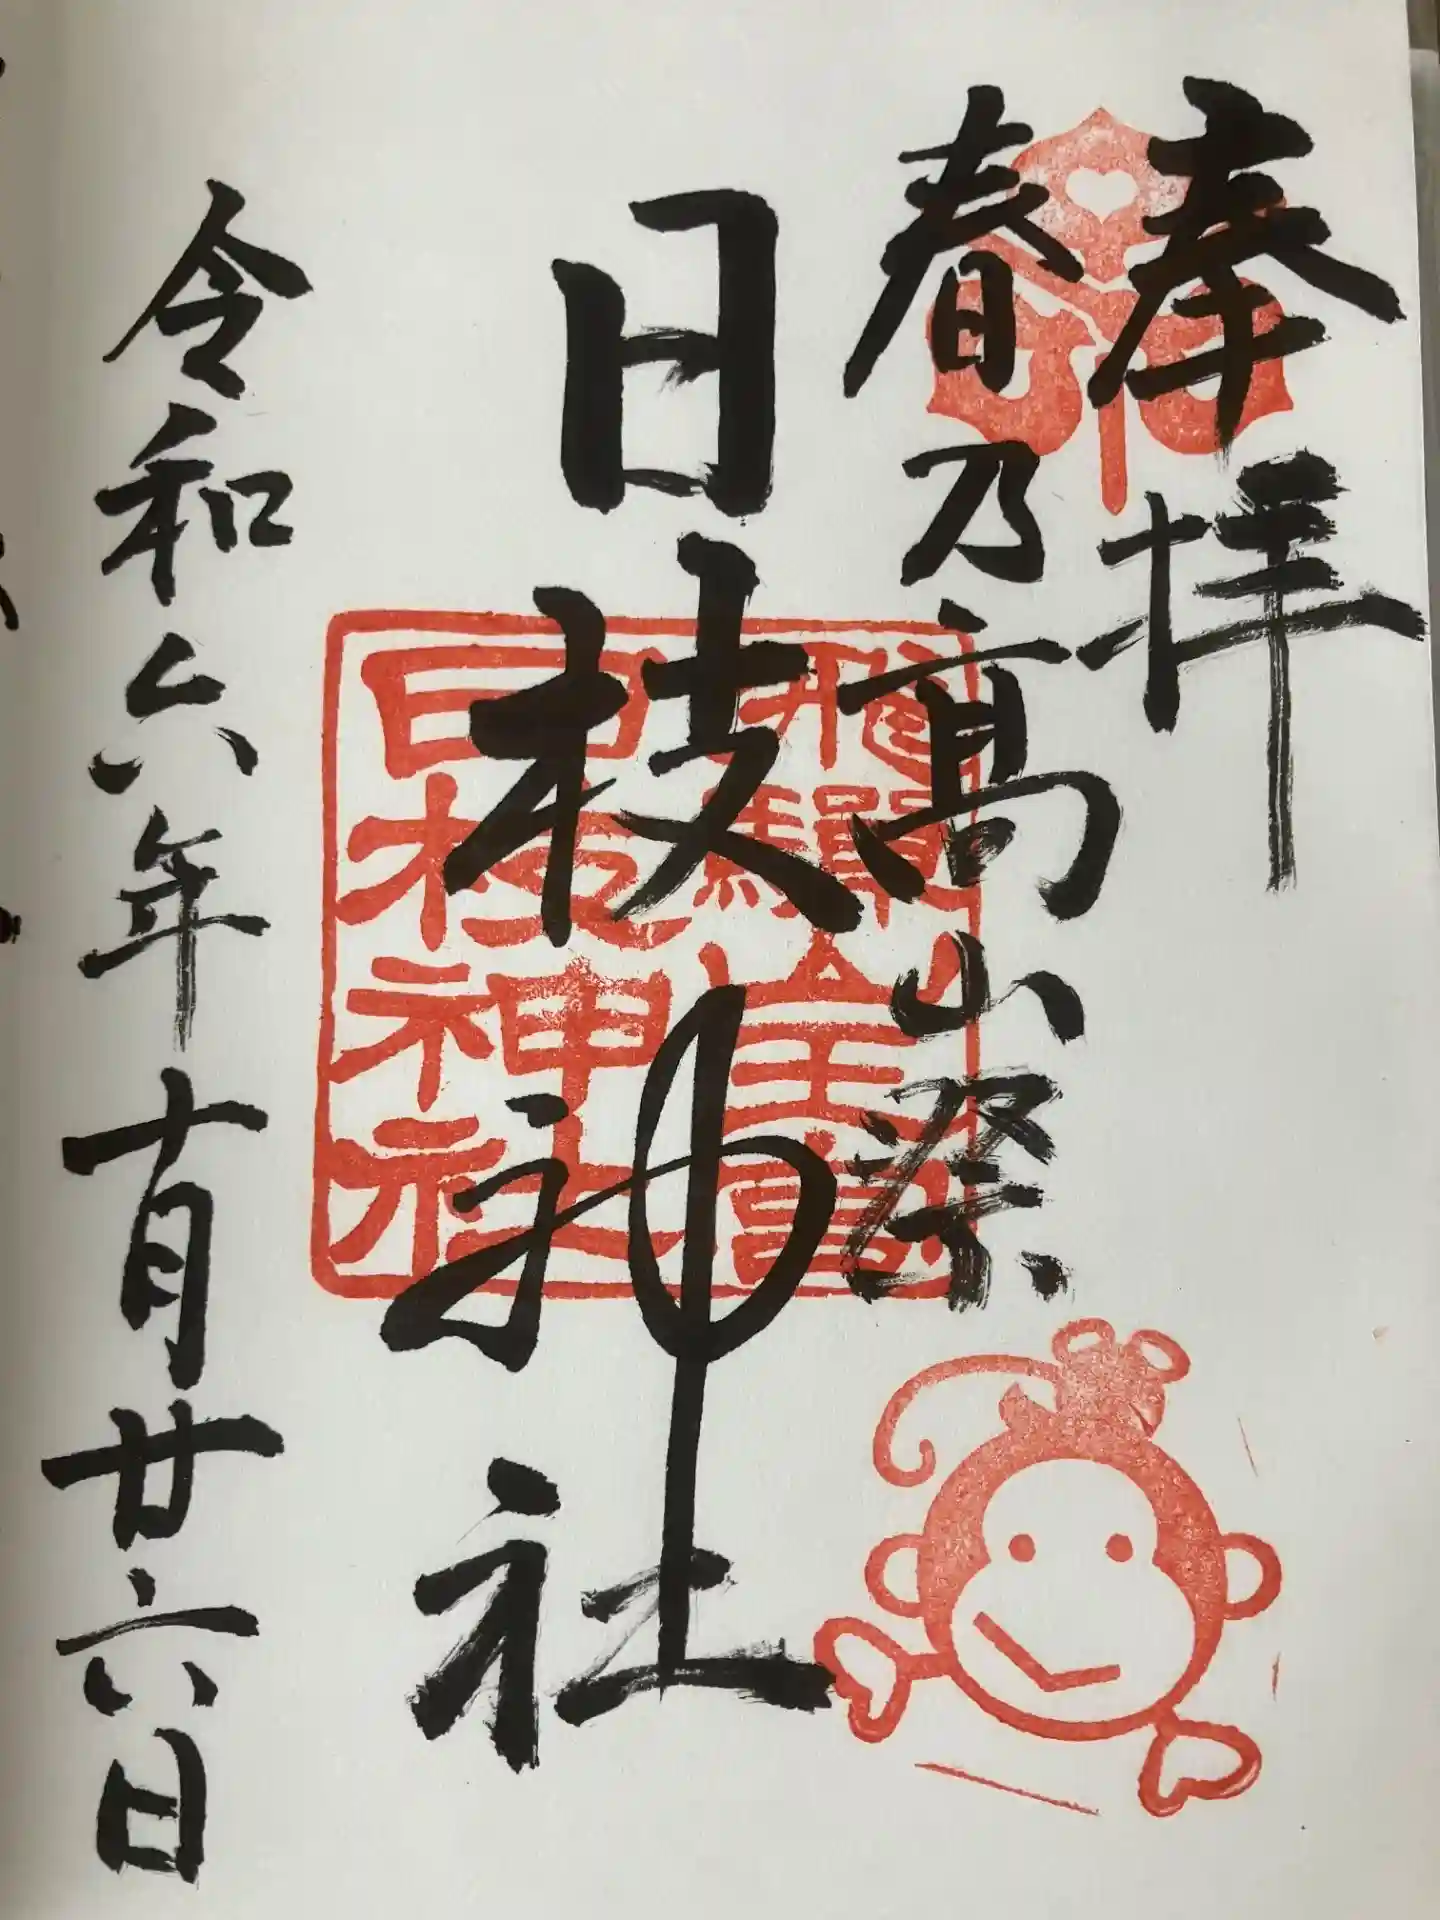 奉拝
春乃高山祭
日枝神社
飛騨山王宮
日枝神社
令和六年十月廿六日